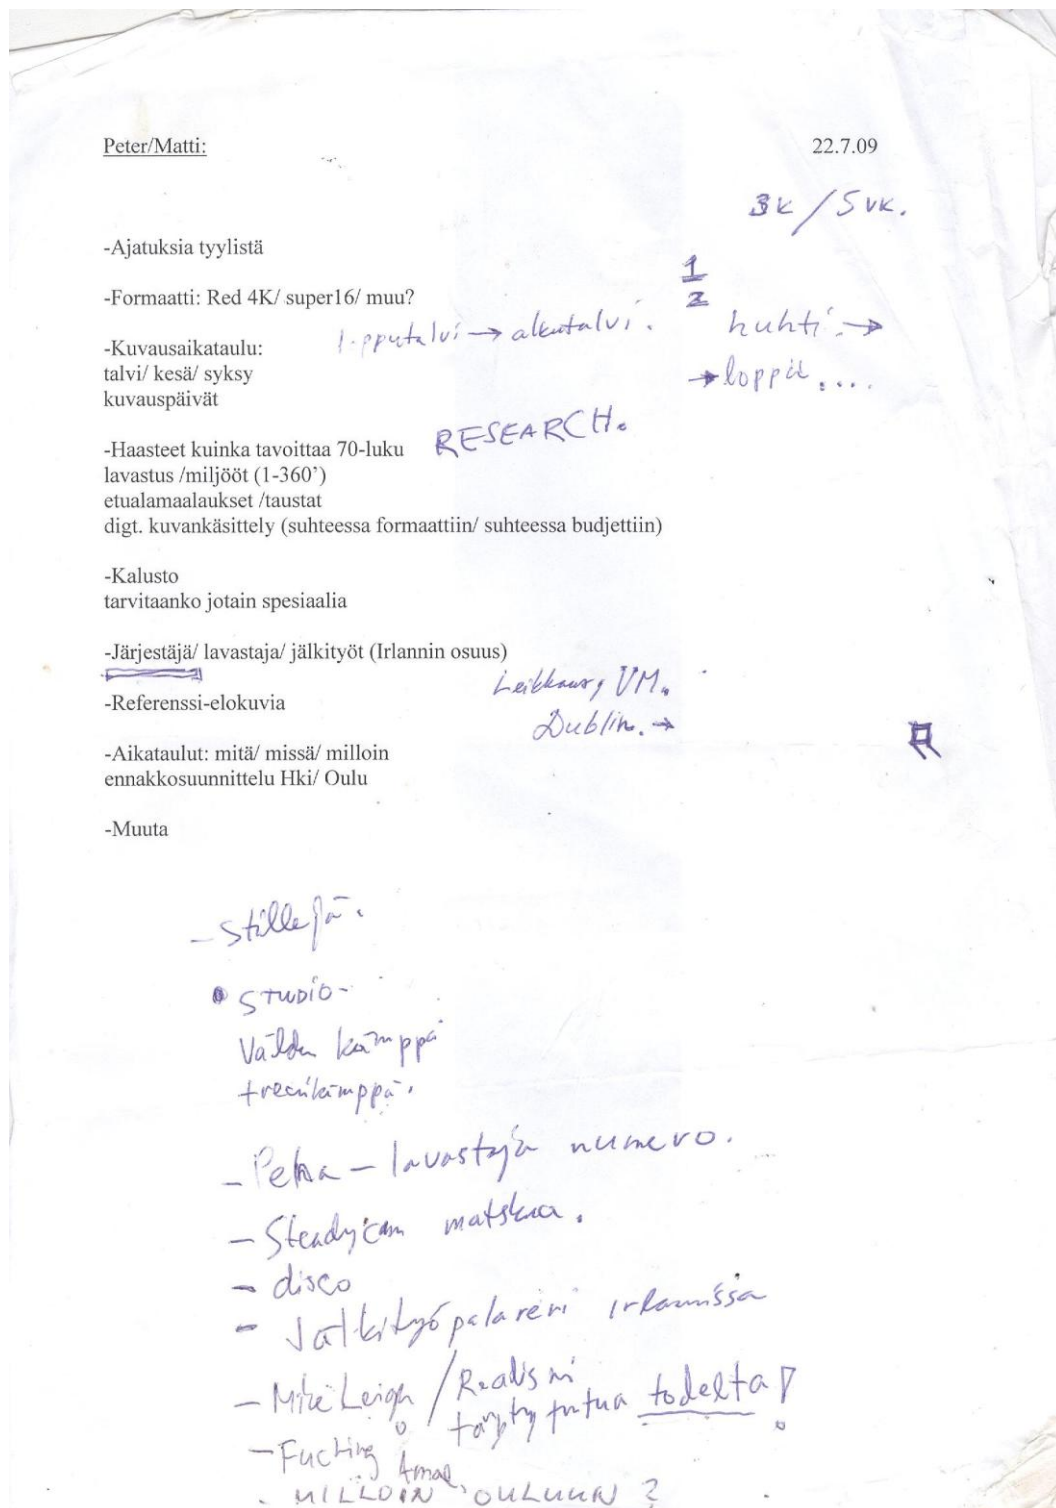 Peter/Matti: 22.7.09
3k / 5 vk.
-Ajatuksia tyylistä
1
2
-Formaatti: Red 4K/ super16/ muu?
lopputalvi → alkutalvi. huhti →
-Kuvausaikataulu:
talvi/ kesä/ syksy → loppu....
kuvauspäivät
RESEARCH.
-Haasteet kuinka tavoittaa 70-luku
lavastus /miljööt (1-360’)
etualamaalaukset /taustat
digt. kuvankäsittely (suhteessa formaattiin/ suhteessa budjettiin)
-Kalusto
tarvitaanko jotain spesiaalia
-Järjestäjä/ lavastaja/ jälkityöt (Irlannin osuus)
Leikkaus, VM.
-Referenssi-elokuvia
Dublin. →
-Aikataulut: mitä/ missä/ milloin
ennakkosuunnittelu Hki/ Oulu
-Muuta
- Stillejä.
• STUDIO-
kämppä
treenikämppä.
- lavastaja numero.
- Steadycam matskua.
- disco
- Jälkityöpalaveri irlannissa
- Mike Leigh / Realismi
täytyy tuntua todelta!
- Fucking Åmål
. MILLOIN OULUUN ?